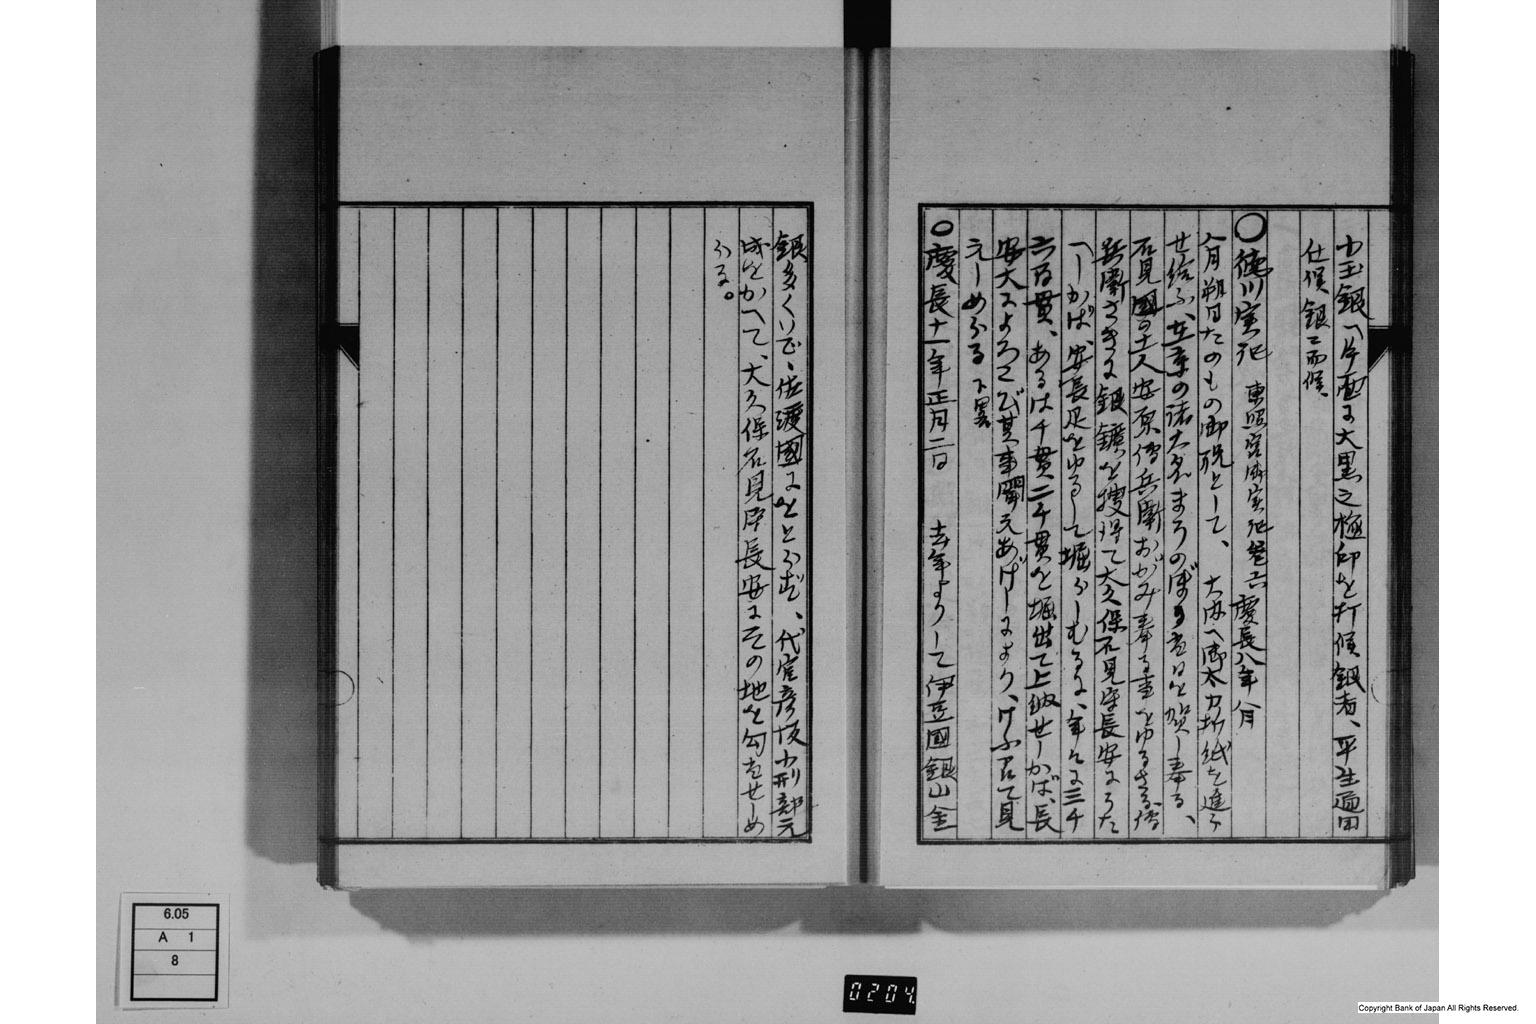 小玉銀へ片面に大黒之極印を打候銀者、平生通用
仕候銀ニ而候、
○徳川実紀 東照宮御実紀巻六 慶長八年八月
八月朔日たのもの御祝として、 大内へ御太刀折紙を進ら
せ給ふ、在京の諸大名まうのぼり当日を賀し奉る、
石見國の土人安原傳兵衛おがみ奉る事をゆるさる、傳
兵衛さきに銀鑛を捜得て大久保石見守長安にうた
へしかば、長安是をゆるして堀らしむるに、年々に三千
六百貫、あるは千貫二千貫を堀出て上納せしかば、長
安大によろこび其事聞えあげしにより、けふ召て見
えしめらる 下略
○慶長十一年正月二日 去年よりして伊豆國銀山金
銀多くいで、佐渡國にをとらず、代官彦坂小刑部元
成をかへて、大久保石見守長安にその地を勾当せしめ
らる。
6.05
A 1
8
0204
Copyright Bank of Japan All Rights Reserved.